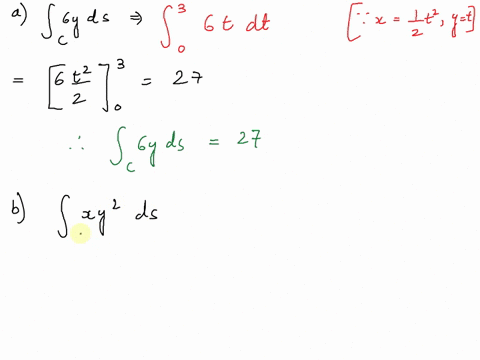 a) ∫_C 6y ds ⇒ ∫_0^3 6t dt [∵ x = 1/2 t², y=t]
= [6 t²/2]_0^3 = 27
∴ ∫_C 6y ds = 27
b) ∫ xy² ds